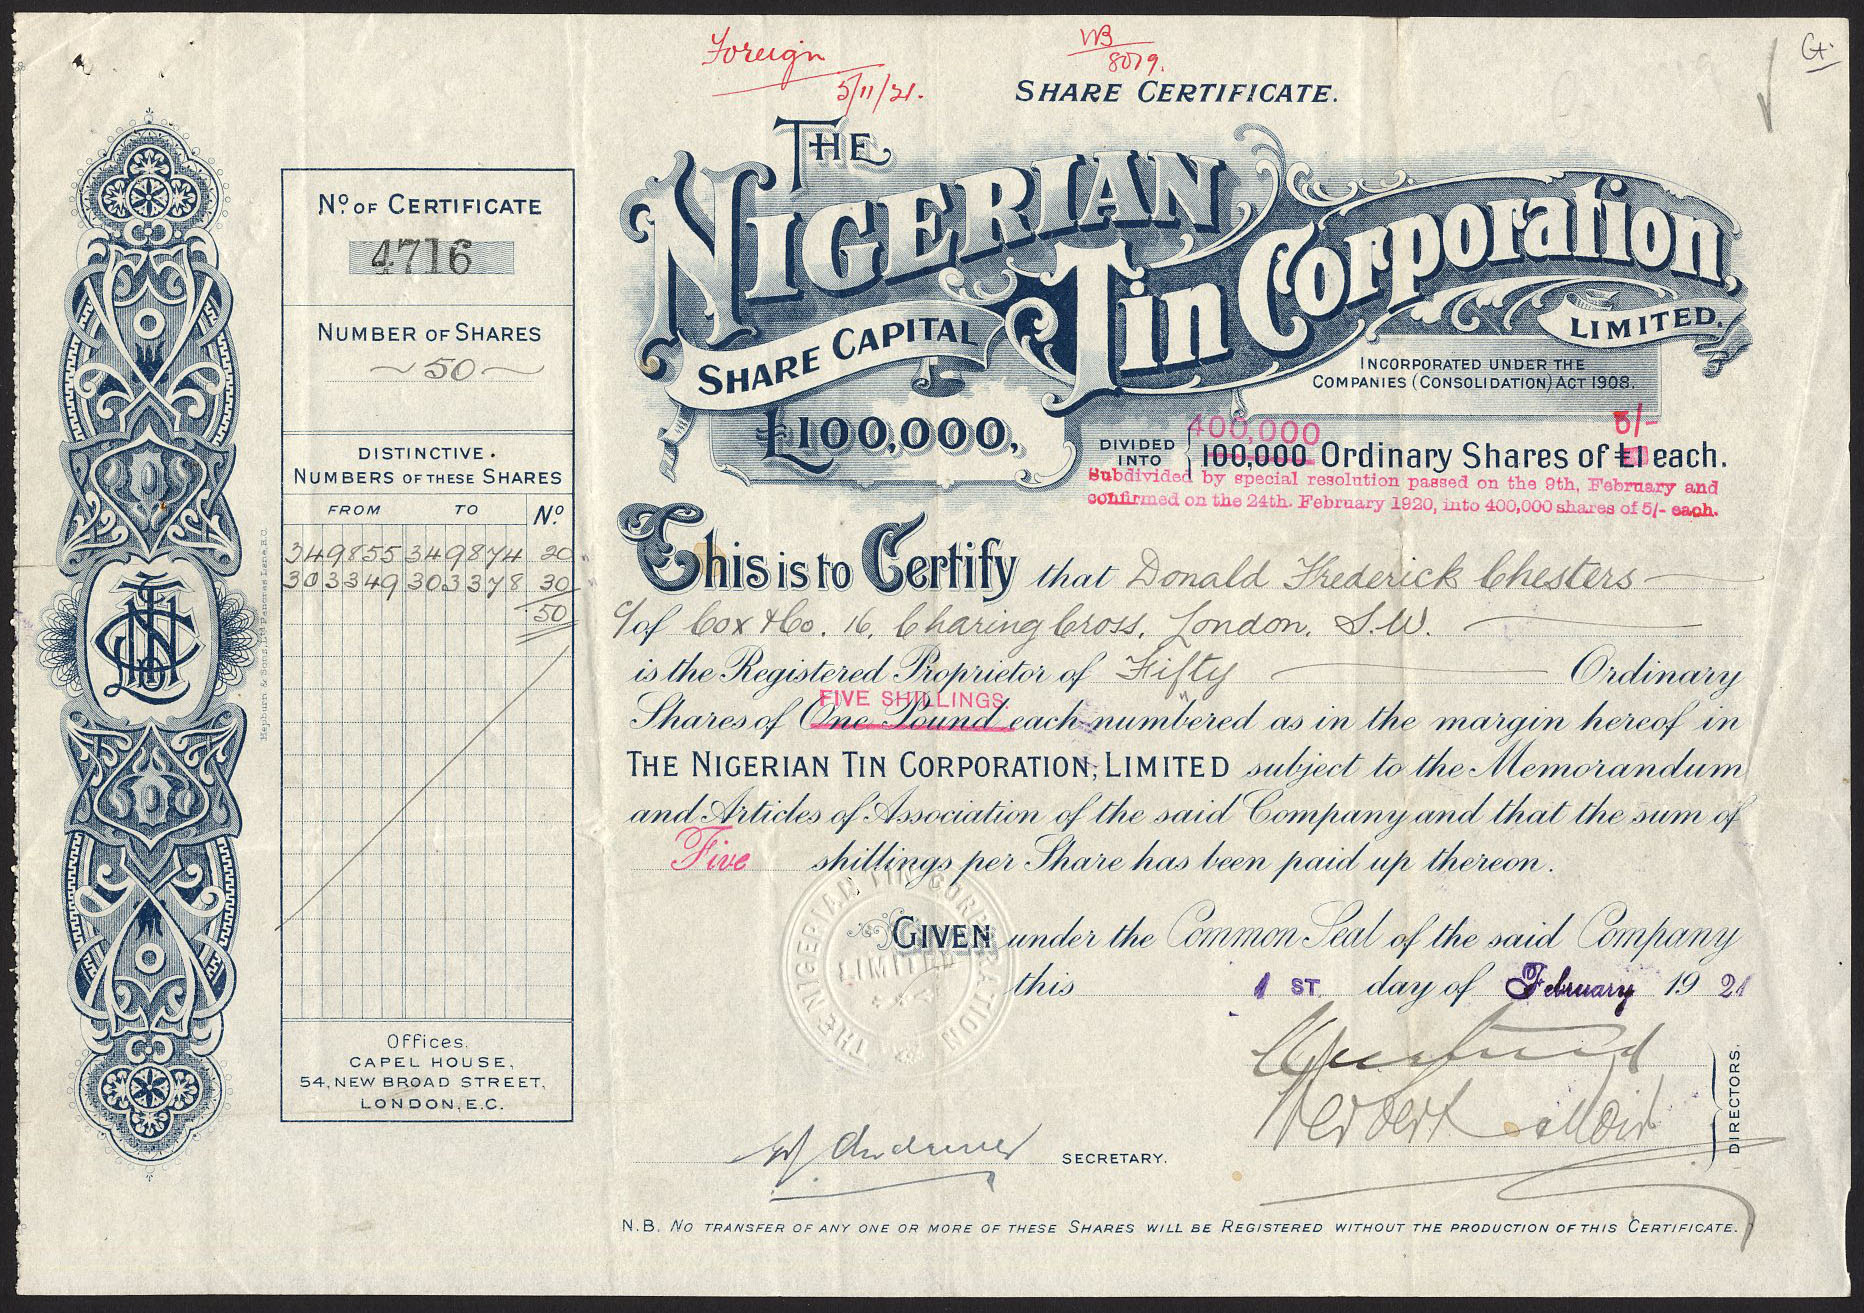 Foreign
5/11/21.
WB
8079.
G.
SHARE CERTIFICATE.
THE
NIGERIAN
Tin Corporation,
LIMITED.
SHARE CAPITAL
£100,000,
INCORPORATED UNDER THE
COMPANIES (CONSOLIDATION) ACT 1908.
400,000 5/-
DIVIDED INTO 100,000 Ordinary Shares of £1 each.
Subdivided by special resolution passed on the 9th, February and
confirmed on the 24th. February 1920, into 400,000 shares of 5/- each.
No. OF CERTIFICATE
4716
NUMBER OF SHARES
50
DISTINCTIVE
NUMBERS OF THESE SHARES
FROM TO No.
349855 349874 20
303349 303378 30
50
Offices.
CAPEL HOUSE,
54, NEW BROAD STREET,
LONDON, E.C.
Hepburn & Sons, Ltd Pancras Lane, E.C.
This is to Certify that Donald Frederick Chesters
c/of Cox & Co. 16, Charing Cross, London, S.W.
is the Registered Proprietor of Fifty Ordinary
FIVE SHILLINGS.
Shares of One Pound each numbered as in the margin hereof in
THE NIGERIAN TIN CORPORATION, LIMITED subject to the Memorandum
and Articles of Association of the said Company and that the sum of
Five shillings per Share has been paid up thereon.
GIVEN under the Common Seal of the said Company
this 1ST. day of February 1921
THE NIGERIAN TIN CORPORATION
LIMITED
Herbert Moir
DIRECTORS.
SECRETARY.
N.B. NO TRANSFER OF ANY ONE OR MORE OF THESE SHARES WILL BE REGISTERED WITHOUT THE PRODUCTION OF THIS CERTIFICATE.